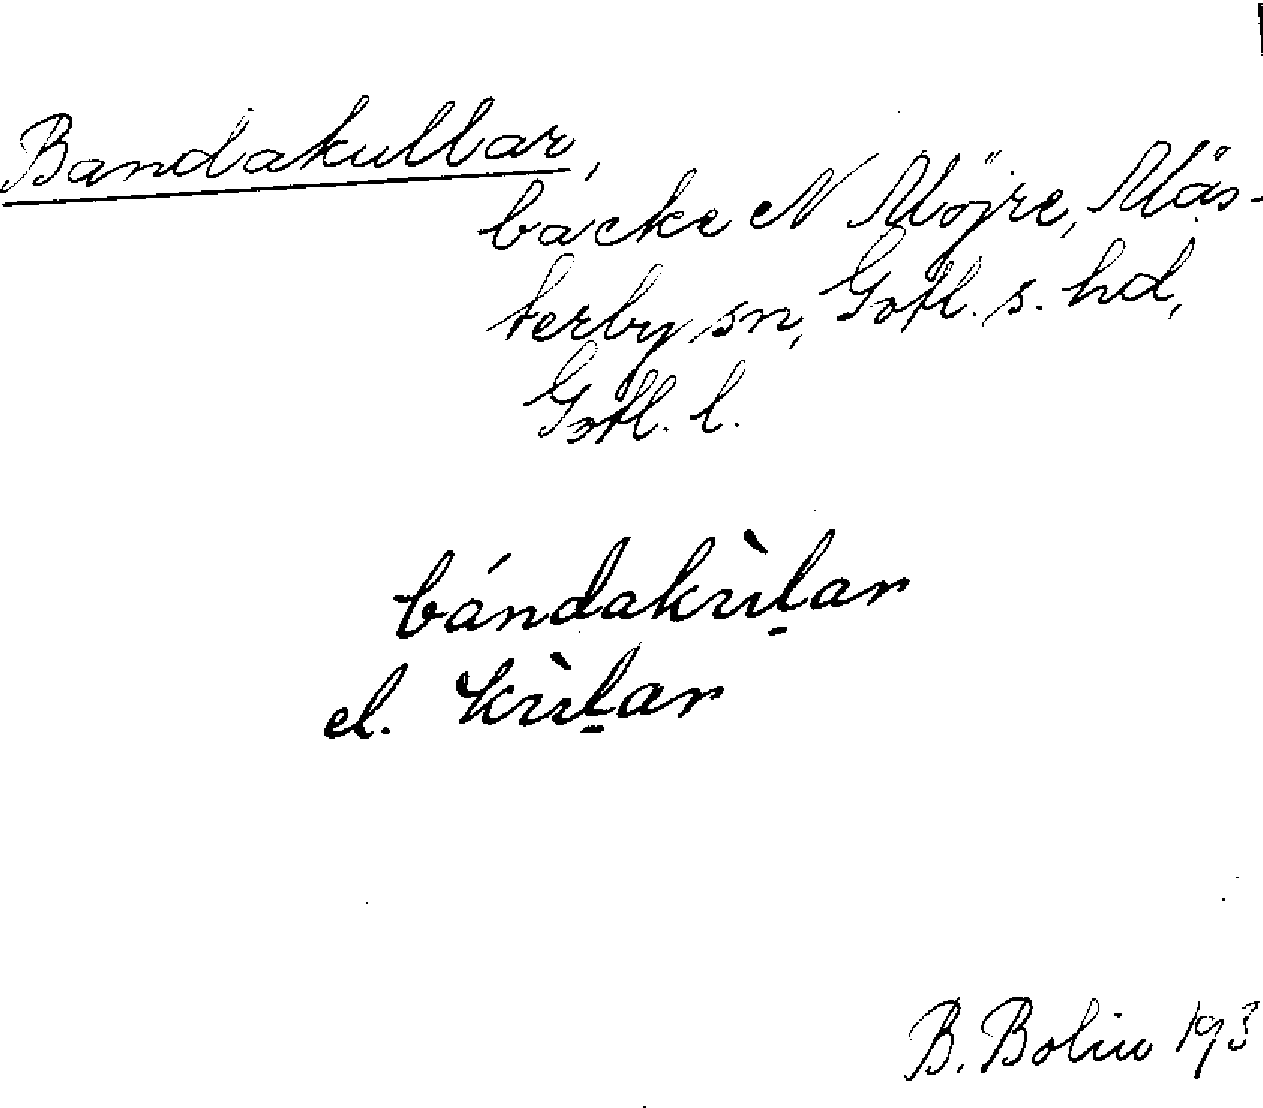 Bandakullar,
backe N Möjre, Mäs-
terby sn, Gotl. s. hd,
Gotl. l.
bándakùḷar
el. kùḷar
B. Bolin 193